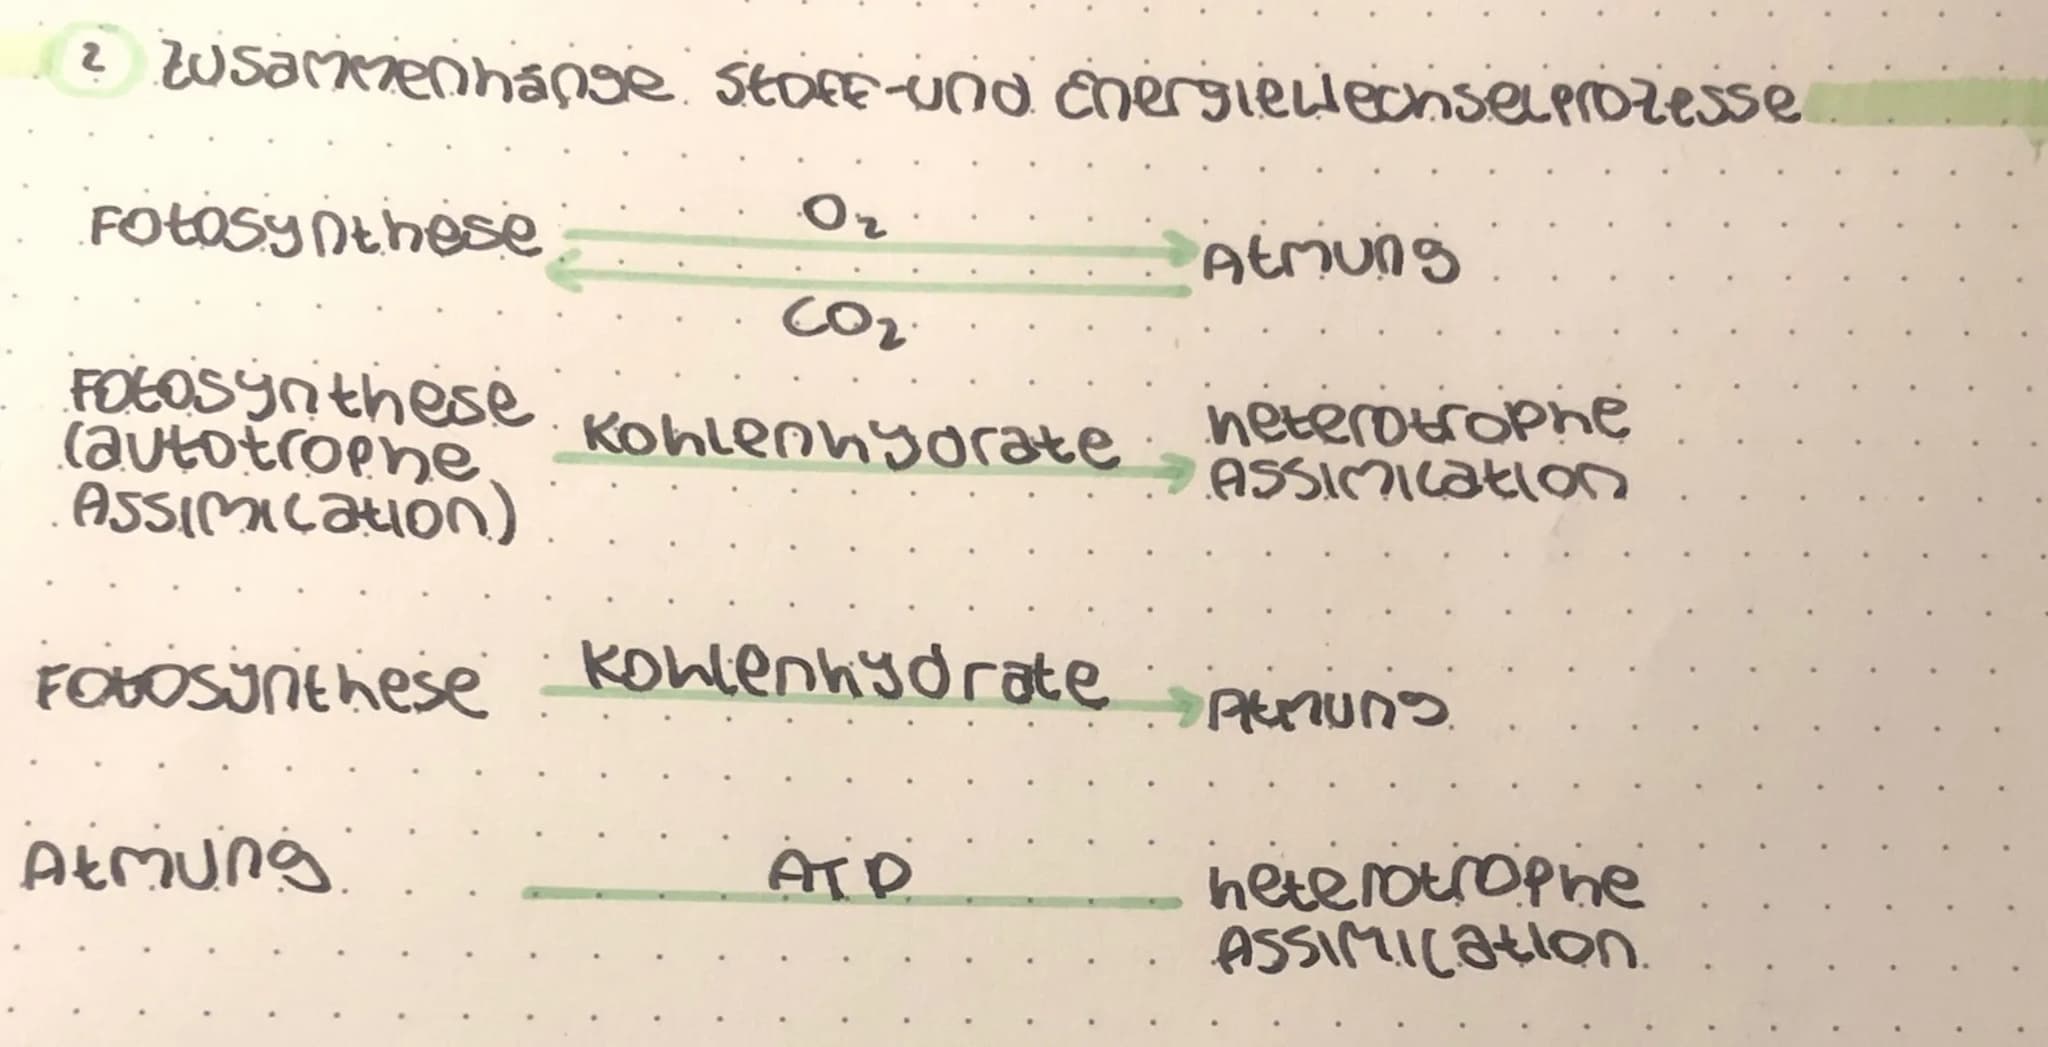 2 Zusammenhänge Stoff-und Energiewechselprozesse
Fotosynthese O₂ Atmung
CO₂
Fotosynthese
(autotrophe
Assimilation)
Kohlenhydrate
heterotrophe
Assimilation
Fotosynthese Kohlenhydrate Atmung
Atmung ATP heterotrophe
Assimilation